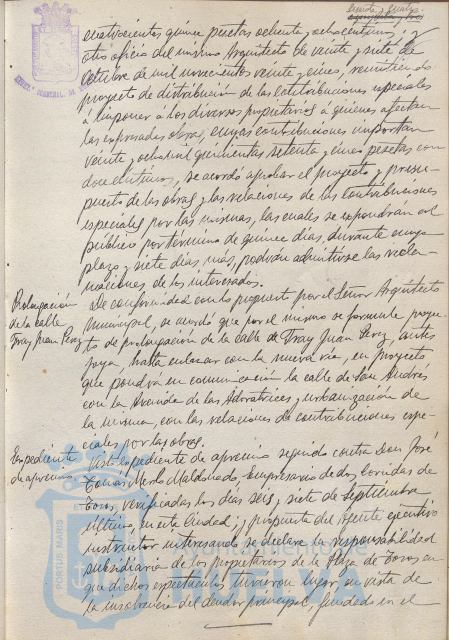 cuatrocientas quince pesetas ochenta y ocho centimos, y
otro oficio del mismo Arquitecto de veinte y siete de
Octubre de mil novecientos veinte y cinco, remitiendo
proyecto de distribución de las contribuciones especiales
á imponer á los diversos propietarios á quienes afectan
las expresadas obras, cuyas contribuciones importan
veinte y ocho mil quinientas setenta y cinco pesetas con
doce centimos, se acordó aprobar el proyecto y presu-
puesto de las obras y las relaciones de las contribuciones
especiales por las mismas, las cuales se expondran al
público por termino de quince dias, durante cuyo
plazo y siete dias más, podran admitirse las recla-
maciones de los interesados.
Prolongación
de la calle
Fray Juan Perez
De conformidad con lo propuesto por el Señor Arquitecto
Municipal, se acordó que por el mismo se formule proyec-
to de prolongación de la calle de Fray Juan Perez, antes
Joya, hasta enlazar con la nueva via, en proyecto
que pondrá en comunicación la calle de San Andrés
con la Avenida de las Adoratrices, y urbanización de
la misma, con las relaciones de contribuciones espe-
ciales por las obras.
Expediente
de apremio.
Visto expediente de apremio seguido contra Don José
Merlo Maldonado, Empresario de dos corridas de
Toros, verificadas los dias seis y siete de Septiembre
último, en esta Ciudad, y propuesta del Agente ejecutivo
instructor interesando se declare la responsabilidad
subsidiaria de los propietarios de la Plaza de Toros en
que dichos espectaculos tuvieron lugar, en vista de
la insolvencia del deudor principal, fundada en el
PORTUS MARIS
Ayuntamiento de
HUELVA